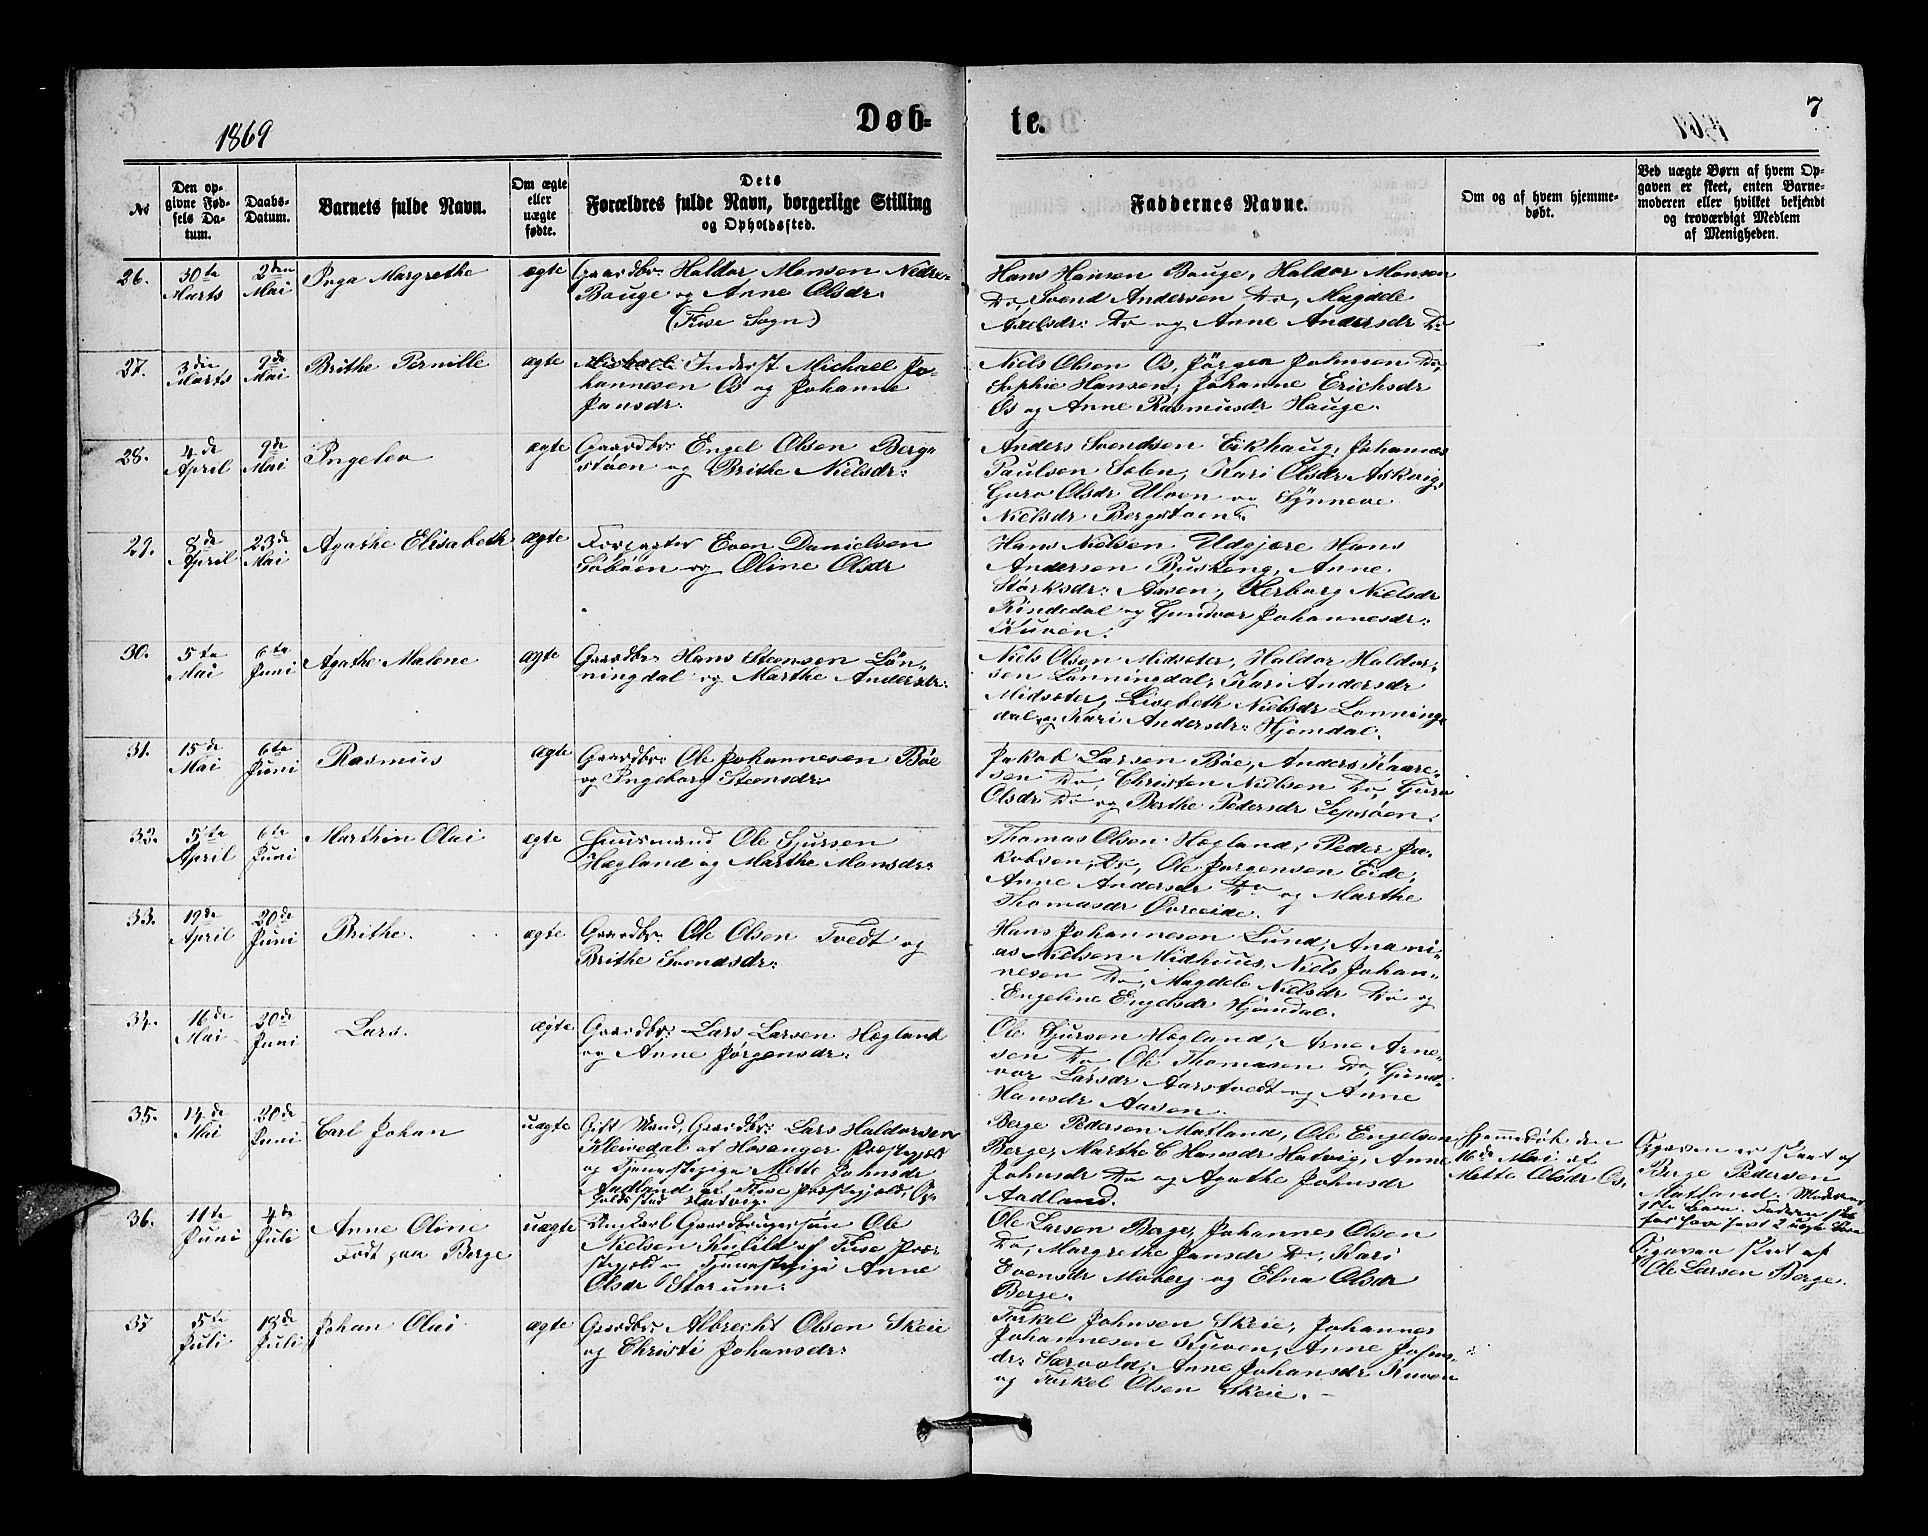 1869
Døb-
te.
7
No
Den opgivne Fødsels Datum.
Daabs-Datum.
Barnets fulde Navn.
Om ægte eller uægte fødte.
Dets
Forældres fulde Navn, borgerlige Stilling
og Opholdssted.
Faddernes Navne.
Om og af hvem hjemmedøbt.
Ved uægte Børn af hvem Opgaven er skeet, enten Barnemoderen eller hvilket bekjendt og troværdigt Medlem af Menigheden.
26. 30te Marts 2den Mai Inga Margrethe ægte
Gaardbr: Haldor Monsen Nedre-
Bouge og Anne Olsdr.
(Fuse Sogn)
Hans Hansen Bouge, Haldor Monsen
Do, Svend Andersen Do, Magdele
Axelsdr: Do og Anne Andersdr Do
27. 3die Marts 9de Mai Brithe Pernille ægte
Inderst Michael Jo-
hannesen Os og Johanne
Jansdr.
Niels Olsen Os, Jørgen Johnsen Do,
Sophie Hansen, Johanne Erichsdr
Os og Anne Rasmusdr Hauge.
28. 4de April 9de Mai Ingelev ægte
Gaardbr: Engel Olsen Berg-
støen og Brithe Nielsdr:
Anders Svendsen Eikhaug, Johannes
Paulsen Solen, Kari Olsdr Askvig,
Guro Olsdr Ulven og Synneve
Nielsdr Bergstøen.
29. 8de April 23de Mai Agathe Elisabeth ægte
Forpagter Even Danielsen
Søbøen og Oline Olsdr
Hans Nielsen Udgjære Hans
Andersen Buskeng, Anne
Størksdr: Aasen, Herborg Nielsdr
Rindedal og Gundvor Johannesdr:
Kuven.
30. 5te Mai 6te Juni Agathe Malene ægte
Gaardbr: Hans Steensen Løn-
ningdal og Marthe Andersdr:
Niels Olsen Midsæter, Haldor Haldor-
sen Lønningdal, Kari Andersdr
Midsæter, Lisebeth Nielsdr Lønning-
dal og Kari Andersdr: Hjemdal.
31. 15de Mai 6te Juni Rasmus ægte
Gaardbr: Ole Johannesen Bøe
og Ingeborg Steensdr:
Jakob Larsen Bøe, Anders Kaare-
sen Do, Christen Nielsen Do, Guro
Olsdr Do og Berthe Pedersdr Lepsøen.
32. 5te April 6te Juni Marthin Olai ægte
Huusmand Ole Sjursen
Hægland og Marthe Monsdr:
Thomas Olsen Hægland, Peder Ja-
kobsen, Do, Ole Jørgensen Eide,
Anne Andersdr Do og Marthe
Thomasdr Øvreeide.
33. 19de April 20de Juni Brithe. ægte
Gaardbr: Ole Olsen Tvedt og
Brithe Svendsdr:
Hans Johannesen Lund, Anani-
as Nielsen Midhuus, Niels Johan-
nesen Do, Magdele Nielsdr Do og
Engeline Engelsdr Hjemdal.
34. 16de Mai 20de Juni Lars. ægte
Gaardbr: Lars Larsen Hægland
og Anne Jørgensdr:
Ole Sjursen Hægland, Arne Arne-
sen Do, Ole Thomasen Do, Gund-
vor Larsdr Aarstvedt og Anne
Hansdr Aasen.
35. 14de Mai 20de Juni Carl Johan uægte
Gift Mand, Gaardbr: Lars Haldorsen
Kleivedal af Hosanger Præstegjeld
og Tjenestepige Mette Johnsdr
Aadland af Fuse Præstegjeld, Op-
holdssted Hatvig.
Berge Pedersen Matland, Ole Engelsen
Berge, Marthe C Hansdr Hatvig, Anne
Johnsdr Do og Agathe Johnsdr
Aadland.
Hjemmedøbt den
16de Mai af
Mette Olsdr Os.
Opgaven er skeet af
Berge Pedersen
Matland. Moderens
1ste Barn. Faderen skal
før have havt 2 uægte Børn
36. 11te Juni 4de Juli Anne Oline
Født paa Berge uægte
Ungkarl Gaardbrugersøn Ole
Nielsen Kulild af Fuse Præ-
stegjeld og Tjenestepige Anne
Olsdr Storum.
Ole Larsen Berge, Johannes Olsen
Do, Margrethe Jansdr Do, Kari
Evensdr Moberg og Elna Olsdr
Berge.
Opgaven skeet af
Ole Larsen Berge.
37 5te Juli 18de Juli Johan Olai ægte
Gaardbr: Albrecht Olsen Skeie
og Christi Johansdr:
Torkel Johnsen Skeie, Johannes
Johannesen Kuven, Anne Johns-
dr: Særvold, Anne Johansdr Kuven
og Torkel Olsen Skeie.